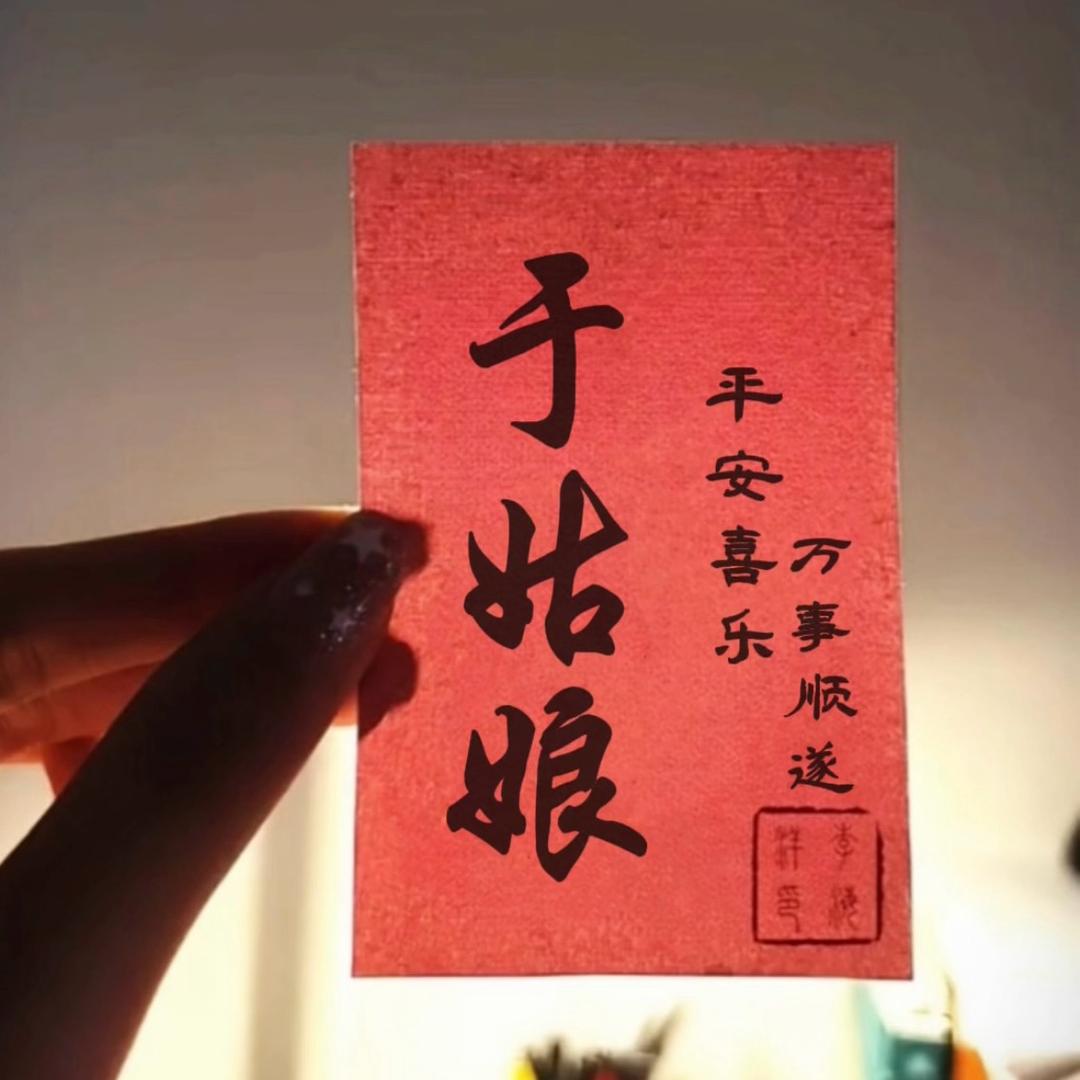 于姑娘
平安喜乐
万事顺遂